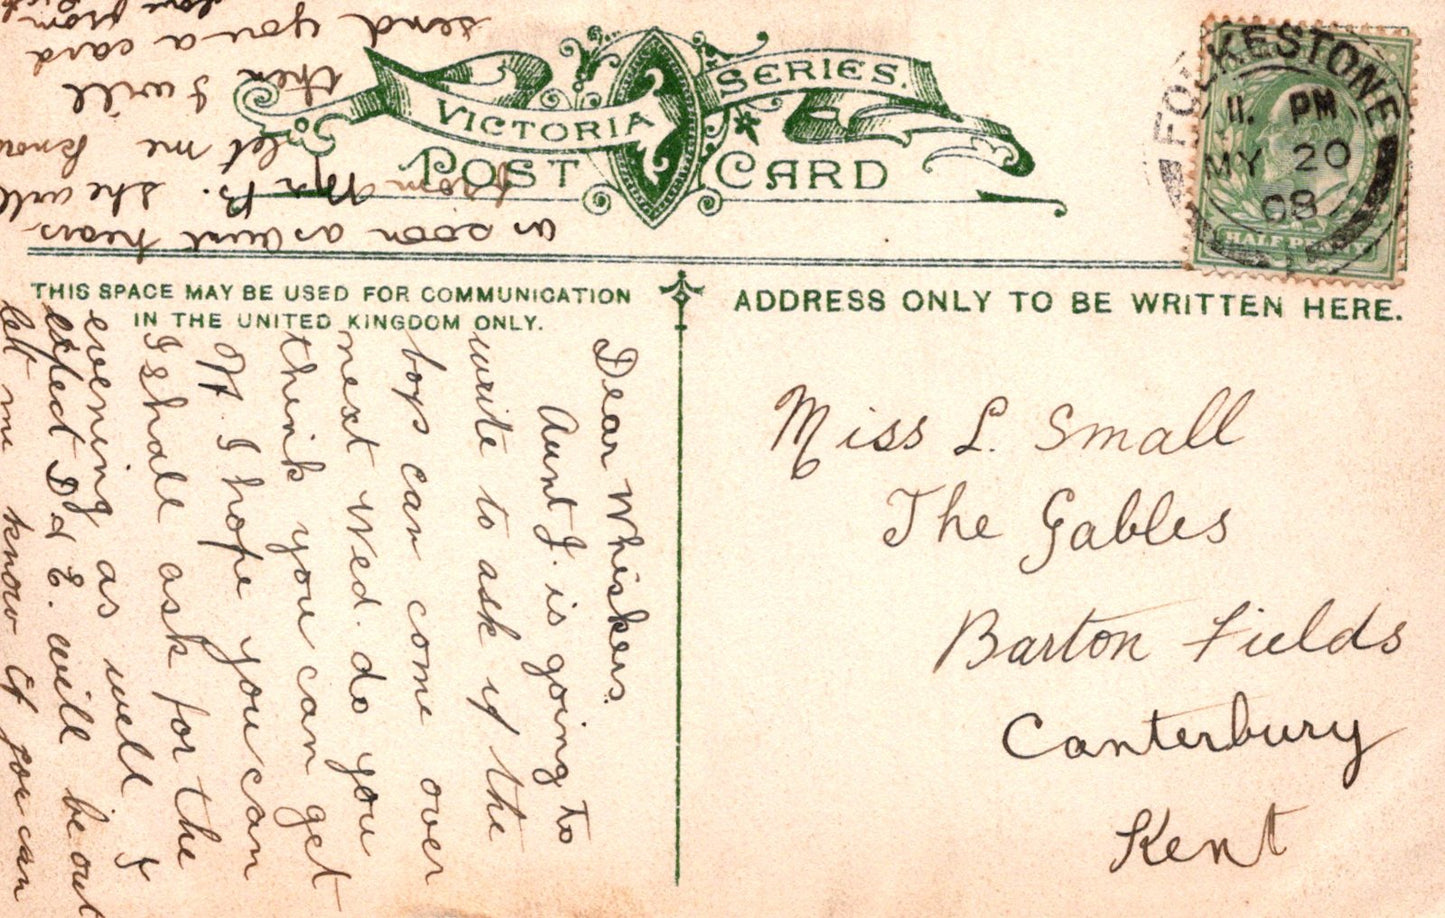 VICTORIA SERIES.
POST CARD
FOLKESTONE
11. PM
MY 20
08
HALF PENNY
THIS SPACE MAY BE USED FOR COMMUNICATION
IN THE UNITED KINGDOM ONLY.
ADDRESS ONLY TO BE WRITTEN HERE.
Miss L. Small
The Gables
Barton Fields
Canterbury
Kent
Dear Whiskers.
Aunt J. is going to
write to ask if the
boys can come over
next Wed. do you
think you can get
I hope you can
I shall ask for the
evening as well &
expect D & E. will be out
let me know if you can
as soon as aunt hears
from Mrs B. She will
let me know
then I will
send you a card
from